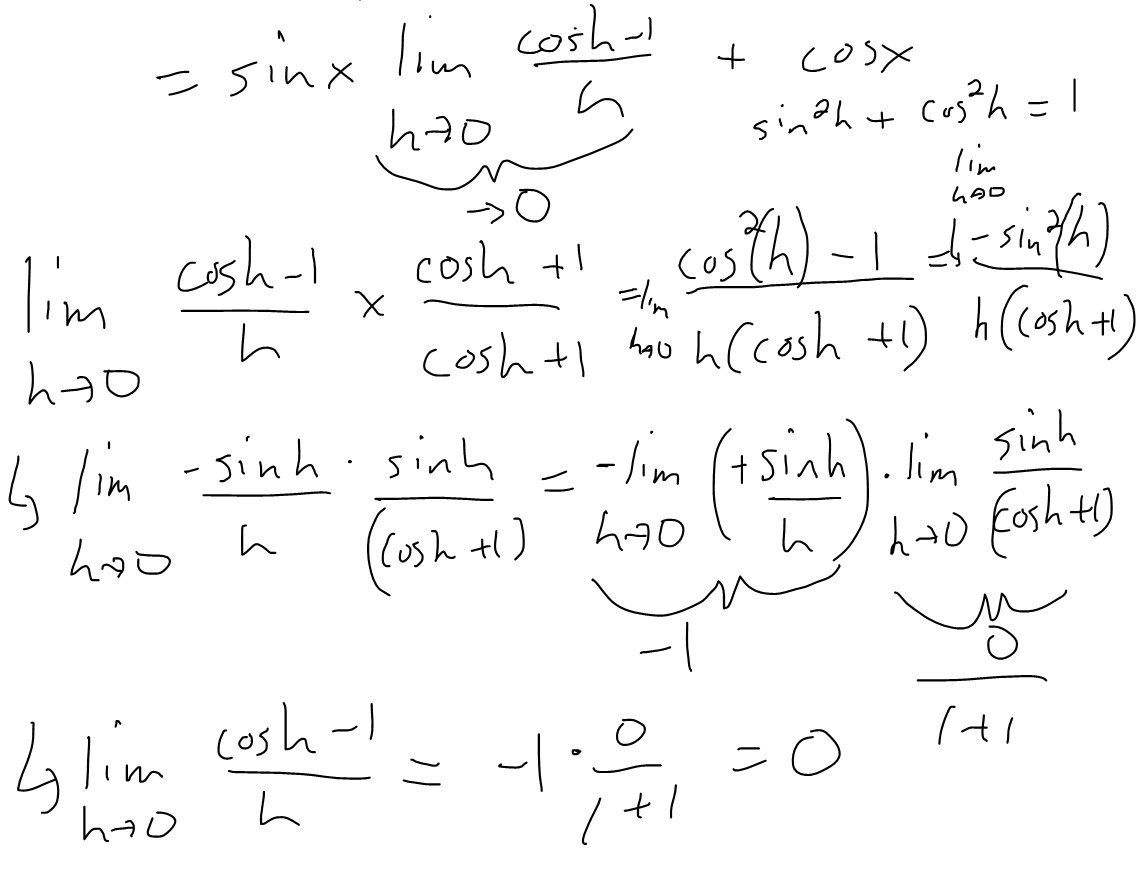 = sin x lim h→0 (cosh-1)/h + cosx
→0
sin²h + cos²h = 1
lim h→0 (cosh-1)/h × (cosh+1)/(cosh+1) = lim h→0 (cos²(h) - 1)/(h(cosh+1)) = lim h→0 (-sin²(h))/(h(cosh+1))
↳ lim h→0 (-sinh)/h · sinh/(cosh+1) = -lim h→0 (+sinh/h) · lim h→0 sinh/(cosh+1)
-1 0/(1+1)
↳ lim h→0 (cosh-1)/h = -1 · 0/(1+1) = 0